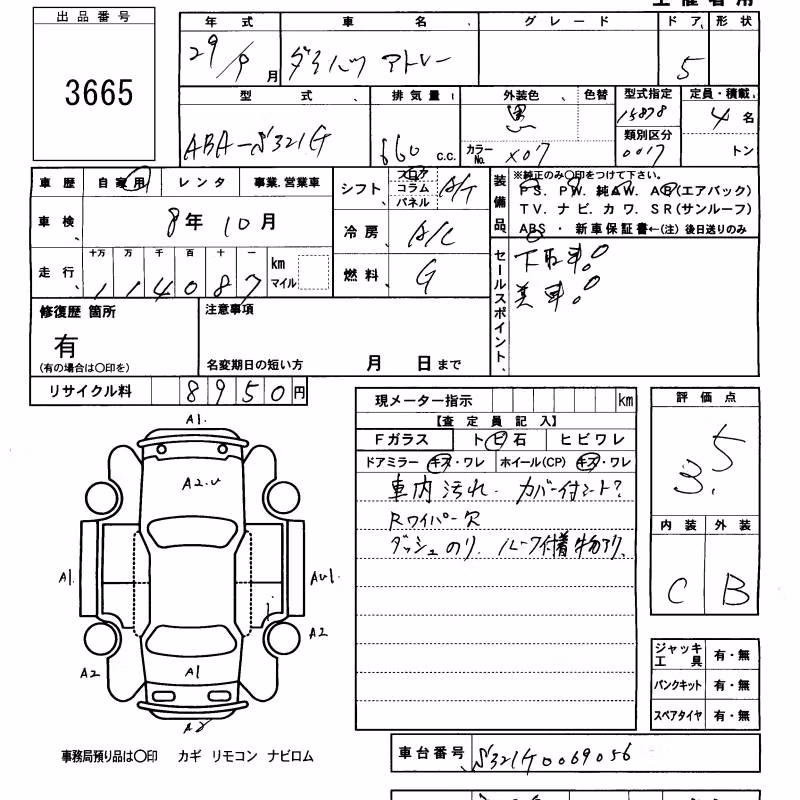 出品番号
3665
年式 車名 グレード ドア 形状
29/9月 ダイハツ アトレー 5
型式 排気量 外装色 色替 型式指定 定員・積載
ABA-S321G 660 c.c. 黒 15878 4名
カラーNo. X07 類別区分 0017 トン
車歴 自家用 レンタ 事業.営業車
シフト フロア コラム パネル A/T
装備品 ※純正のみ〇印をつけて下さい。
PS. PW. 純AW. AB(エアバック)
TV. ナビ. カワ. SR(サンルーフ)
ABS ・ 新車保証書←(注) 後日送りのみ
車検 8年10月
冷房 A/C
走行 十万 万 千 百 十 一
114087 km マイル
燃料 G
セールスポイント
下取車!
美車!
修復歴 箇所
有
(有の場合は〇印を)
注意事項
名変期日の短い方 月 日まで
リサイクル料 8950円
現メーター指示 km
【査定員記入】
Fガラス トビ石 ヒビワレ
ドアミラー キズ・ワレ ホイール(CP) キズ・ワレ
車内汚れ. カバー付シート?
Rワイパー欠
ダッシュのり. ルーフ付着物アリ.
評価点
3.5
内装 外装
C B
A1.
A2.U
A1. AU1.
A2
A2 A1
A2
ジャッキ工具 有・無
パンクキット 有・無
スペアタイヤ 有・無
事務局預り品は〇印 カギ リモコン ナビロム
車台番号 S321G0069056